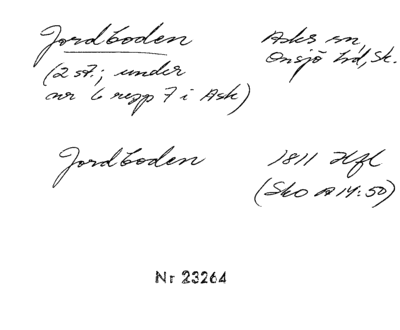 Jordboden Asks sn,
(2 st.; under Onsjö hd, Sk.
nr 6 resp 7 i Ask)
Jordboden 1811 Hfl
(Sko A 14:50)
Nr 23264